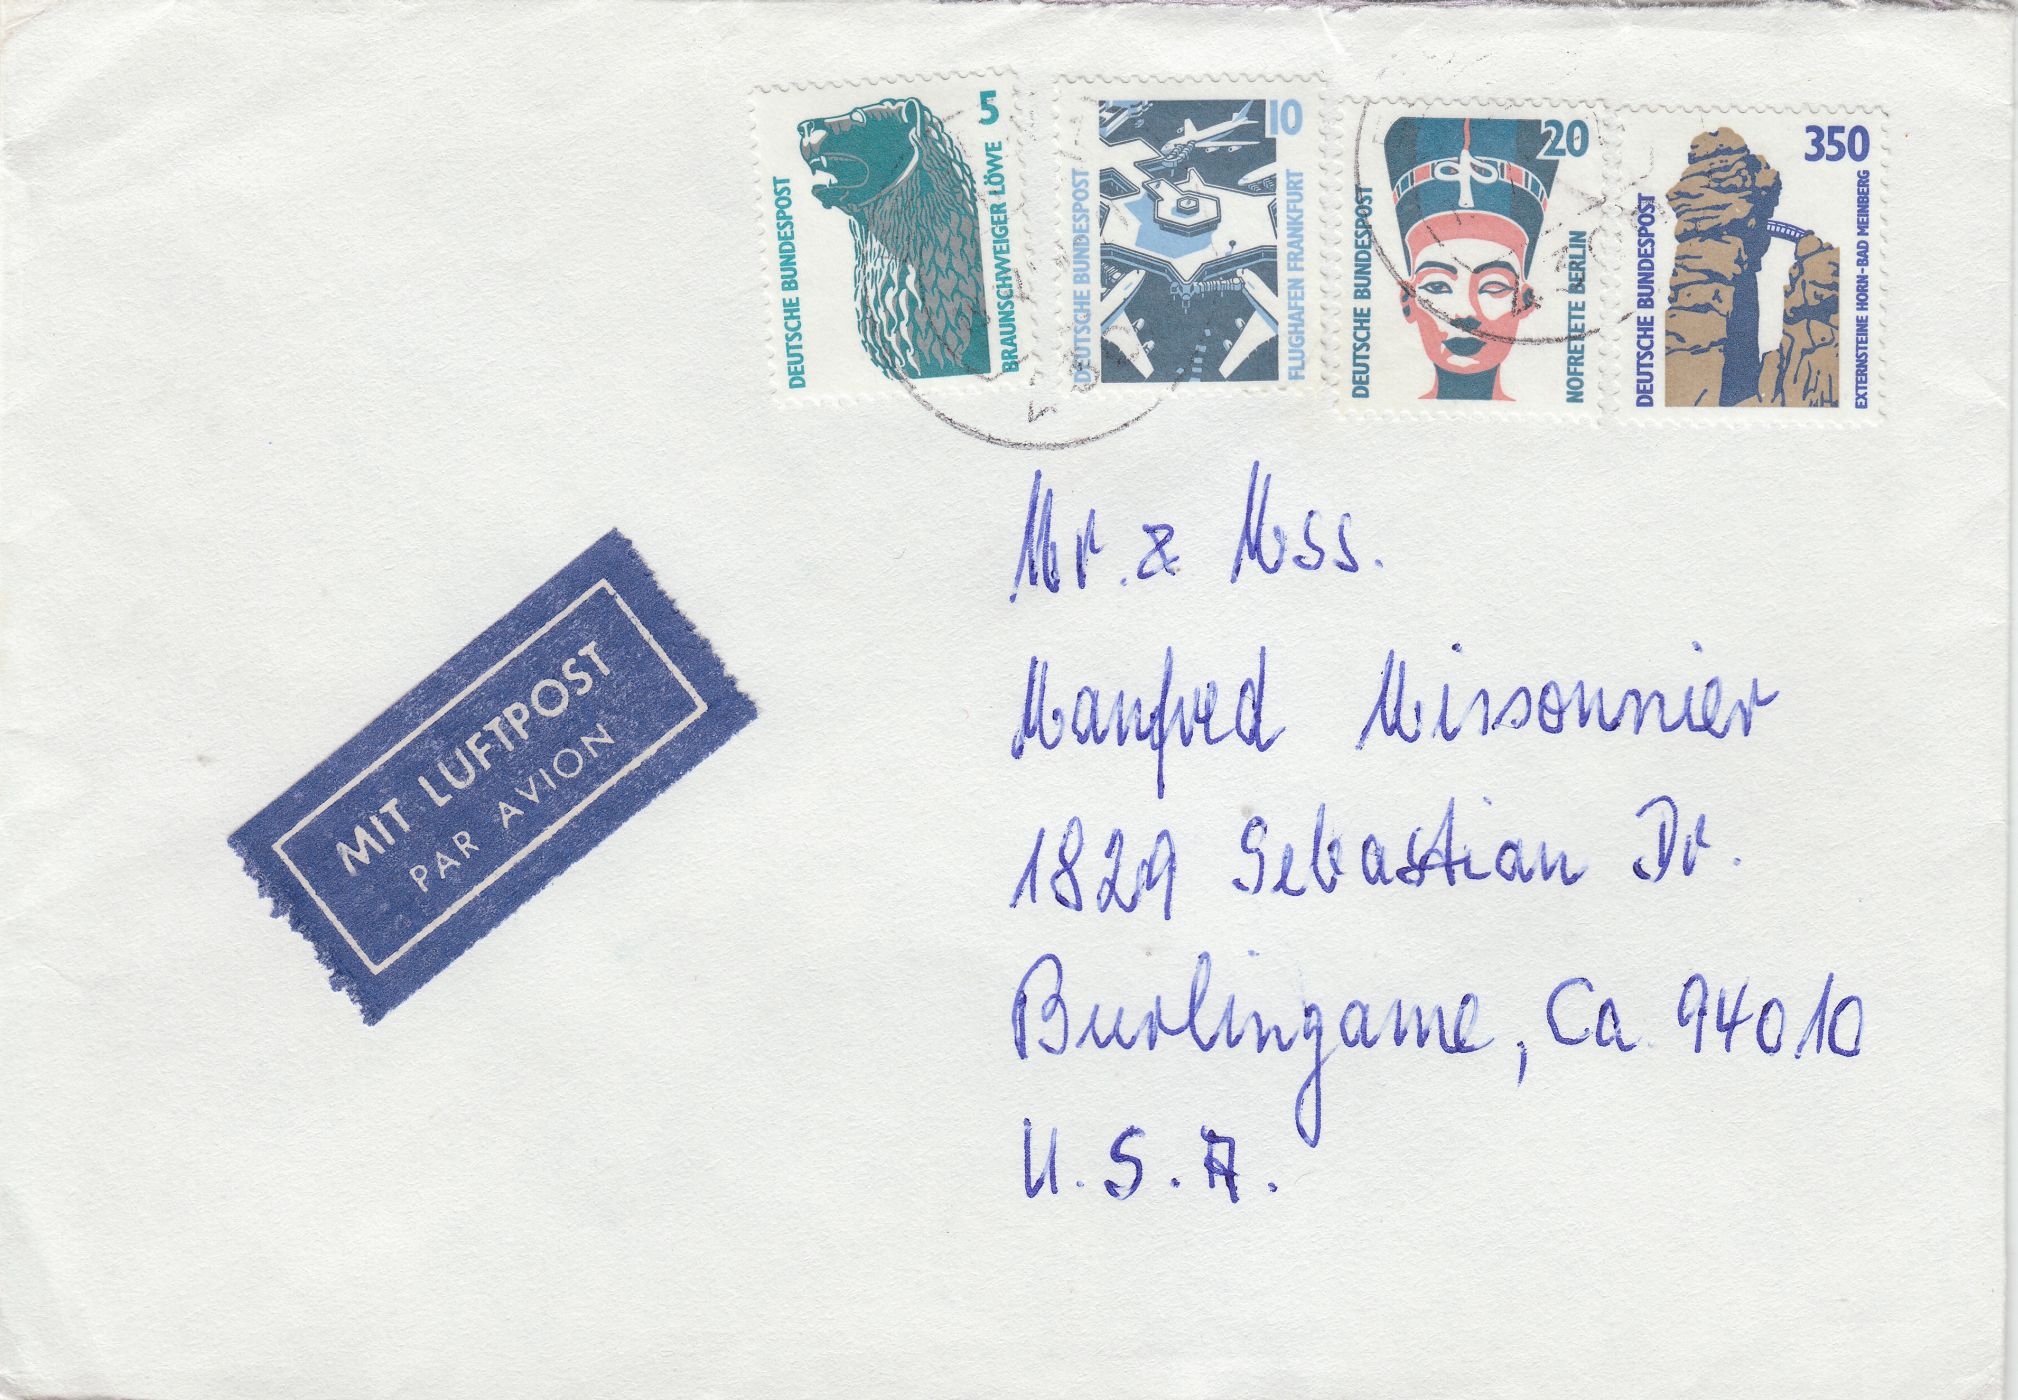 DEUTSCHE BUNDESPOST
5
BRAUNSCHWEIGER LÖWE
DEUTSCHE BUNDESPOST
10
FLUGHAFEN FRANKFURT
DEUTSCHE BUNDESPOST
20
NOFRETETE BERLIN
DEUTSCHE BUNDESPOST
350
EXTERNSTEINE HORN-BAD MEINBERG
MIT LUFTPOST
PAR AVION
Mr. & Mss.
Manfred Missonnier
1829 Sebastian Dr.
Burlingame, Ca 94010
U.S.A.